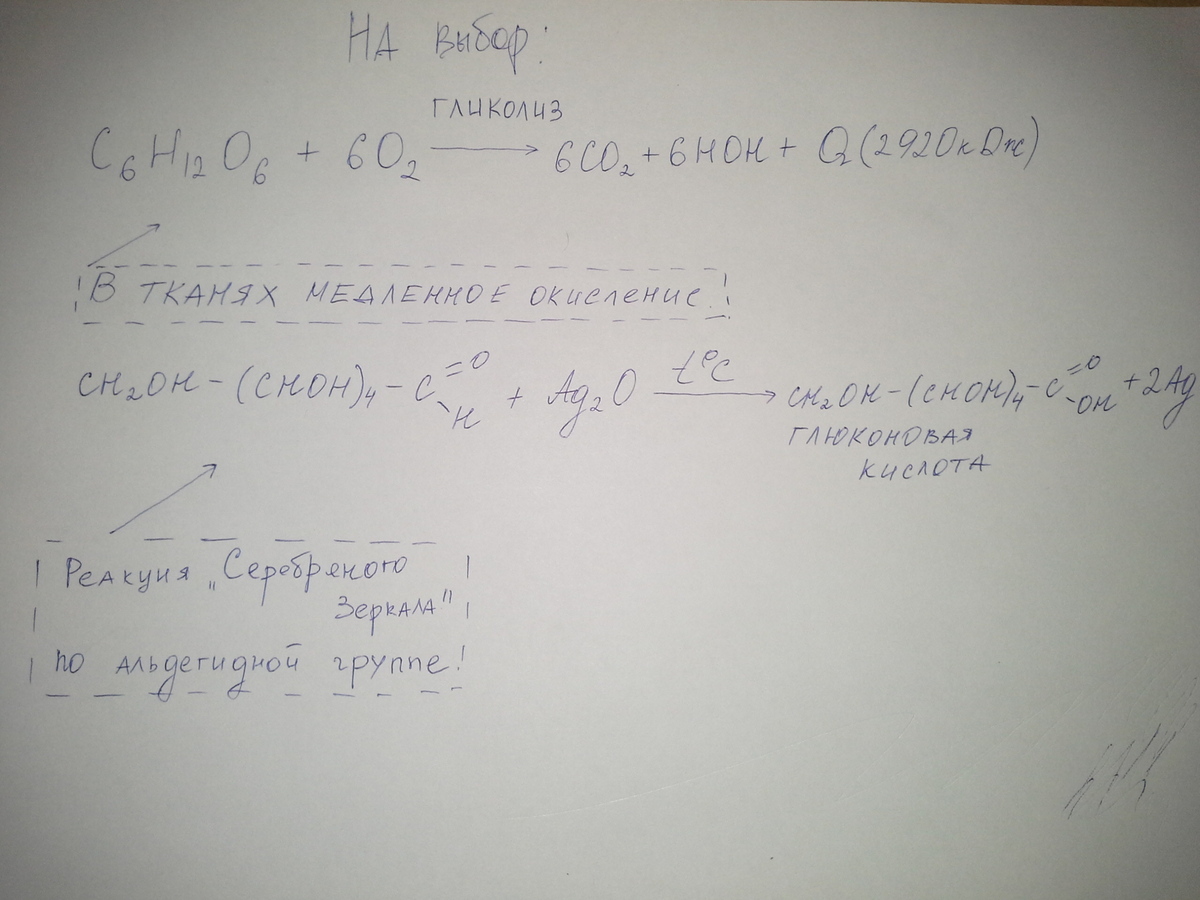 На выбор:
гликолиз
C₆H₁₂O₆ + 6O₂ → 6CO₂ + 6HOH + Q (2920кДж)
В тканях медленное окисление!
CH₂OH - (CHOH)₄ - C =O -H + Ag₂O t°C → CH₂OH - (CHOH)₄ - C =O -OH + 2Ag
глюконовая
кислота
Реакция „Серебряного
Зеркала"
по альдегидной группе!